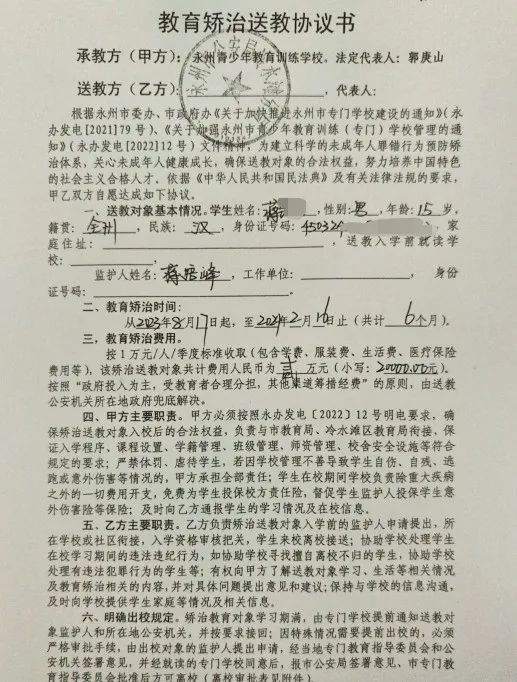 教育矫治送教协议书
承教方（甲方）：永州青少年教育训练学校。法定代表人：郭庚山
送教方（乙方）：，代表人：
根据永州市委办、市政府办《关于加快推进永州市专门学校建设的通知》（永
办发电[2021]79号）、《关于加强永州市青少年教育训练（专门）学校管理的通
知》（永办发电[2022]12号）文件精神，为建立科学的未成年人罪错行为预防矫
治体系，关心未成年人健康成长，确保送教对象的合法权益，努力培养中国特色
的社会主义合格人才、依据《中华人民共和国民法典》及有关法律法规的要求，
甲乙双方自愿达成如下协议。
一、送教对象基本情况。学生姓名：蒋，性别：男，年龄：15岁，
籍贯：全州，民族：汉，身份证号码：450324，家
庭住址：，送教入学前就读学
校：。
监护人姓名：蒋，工作单位：，身份
证号码：。
二、教育矫治时间：
从2023年8月17日起，至2024年2月16日止（共计6个月）。
三，教育矫治费用。
按1万元/人/季度标准收取（包含学费、服装费、生活费、医疗保险
费用等），该矫治送教对象共计费用人民币为贰万元（小写：20000.00元）。
按照“政府投入为主，受教育者合理分担，其他渠道筹措经费”的原则，由送教
公安机关所在地政府兜底解决。
四、甲方主要职责。甲方必须按照永办发电〔2022〕12号明电要求，确
保矫治送教对象入校后的合法权益，负责与市教育局、冷水滩区教育局衔接，保
证入学程序、课程设置、学籍管理、班级管理、师资管理、校舍安全设施等符合
规定的要求；严禁体罚、虐待学生，若因学校管理不善导致学生自伤、自残、逃
跑或意外伤害等情况的，甲方承担全部责任；学生在校期间学校负责除重大疾病
之外的一切费用开支，免费为学生投保校方责任险，督促学生监护人投保学生意
外伤害险等保险；及时向乙方通报学生的学习情况及在校信息。
五、乙方主要职责。乙方负责矫治送教对象入学前的监护人申请提出，所
在学校或社区衔接，入学资格审核把关，学生来校离校接送；协助学校处理学生
在校学习期间的违法违纪行为，如协助学校寻找擅自离校不归的学生，协助学校
处理有违法犯罪行为的学生等；有权向甲方了解送教对象学习、生活等相关情况
及教育矫治相关的内容，并对具体问题提出意见和建议；保持与学校的信息沟通，
及时向学校提供学生家庭等情况及相关信息。
六、明确出校规定。矫治教育对象学习期满，由专门学校提前通知送教对
象监护人和所在地公安机关，并按要求接回；因特殊情况需要提前出校的，必须
严格审批手续，由出校对象的监护人提出申请，经当地专门教育指导委员会和公
安机关签署意见，并经就读的专门学校同意后，报市公安局签署意见、市专门教
育指导委员会批准后方可离校（离校审批表见附件）。